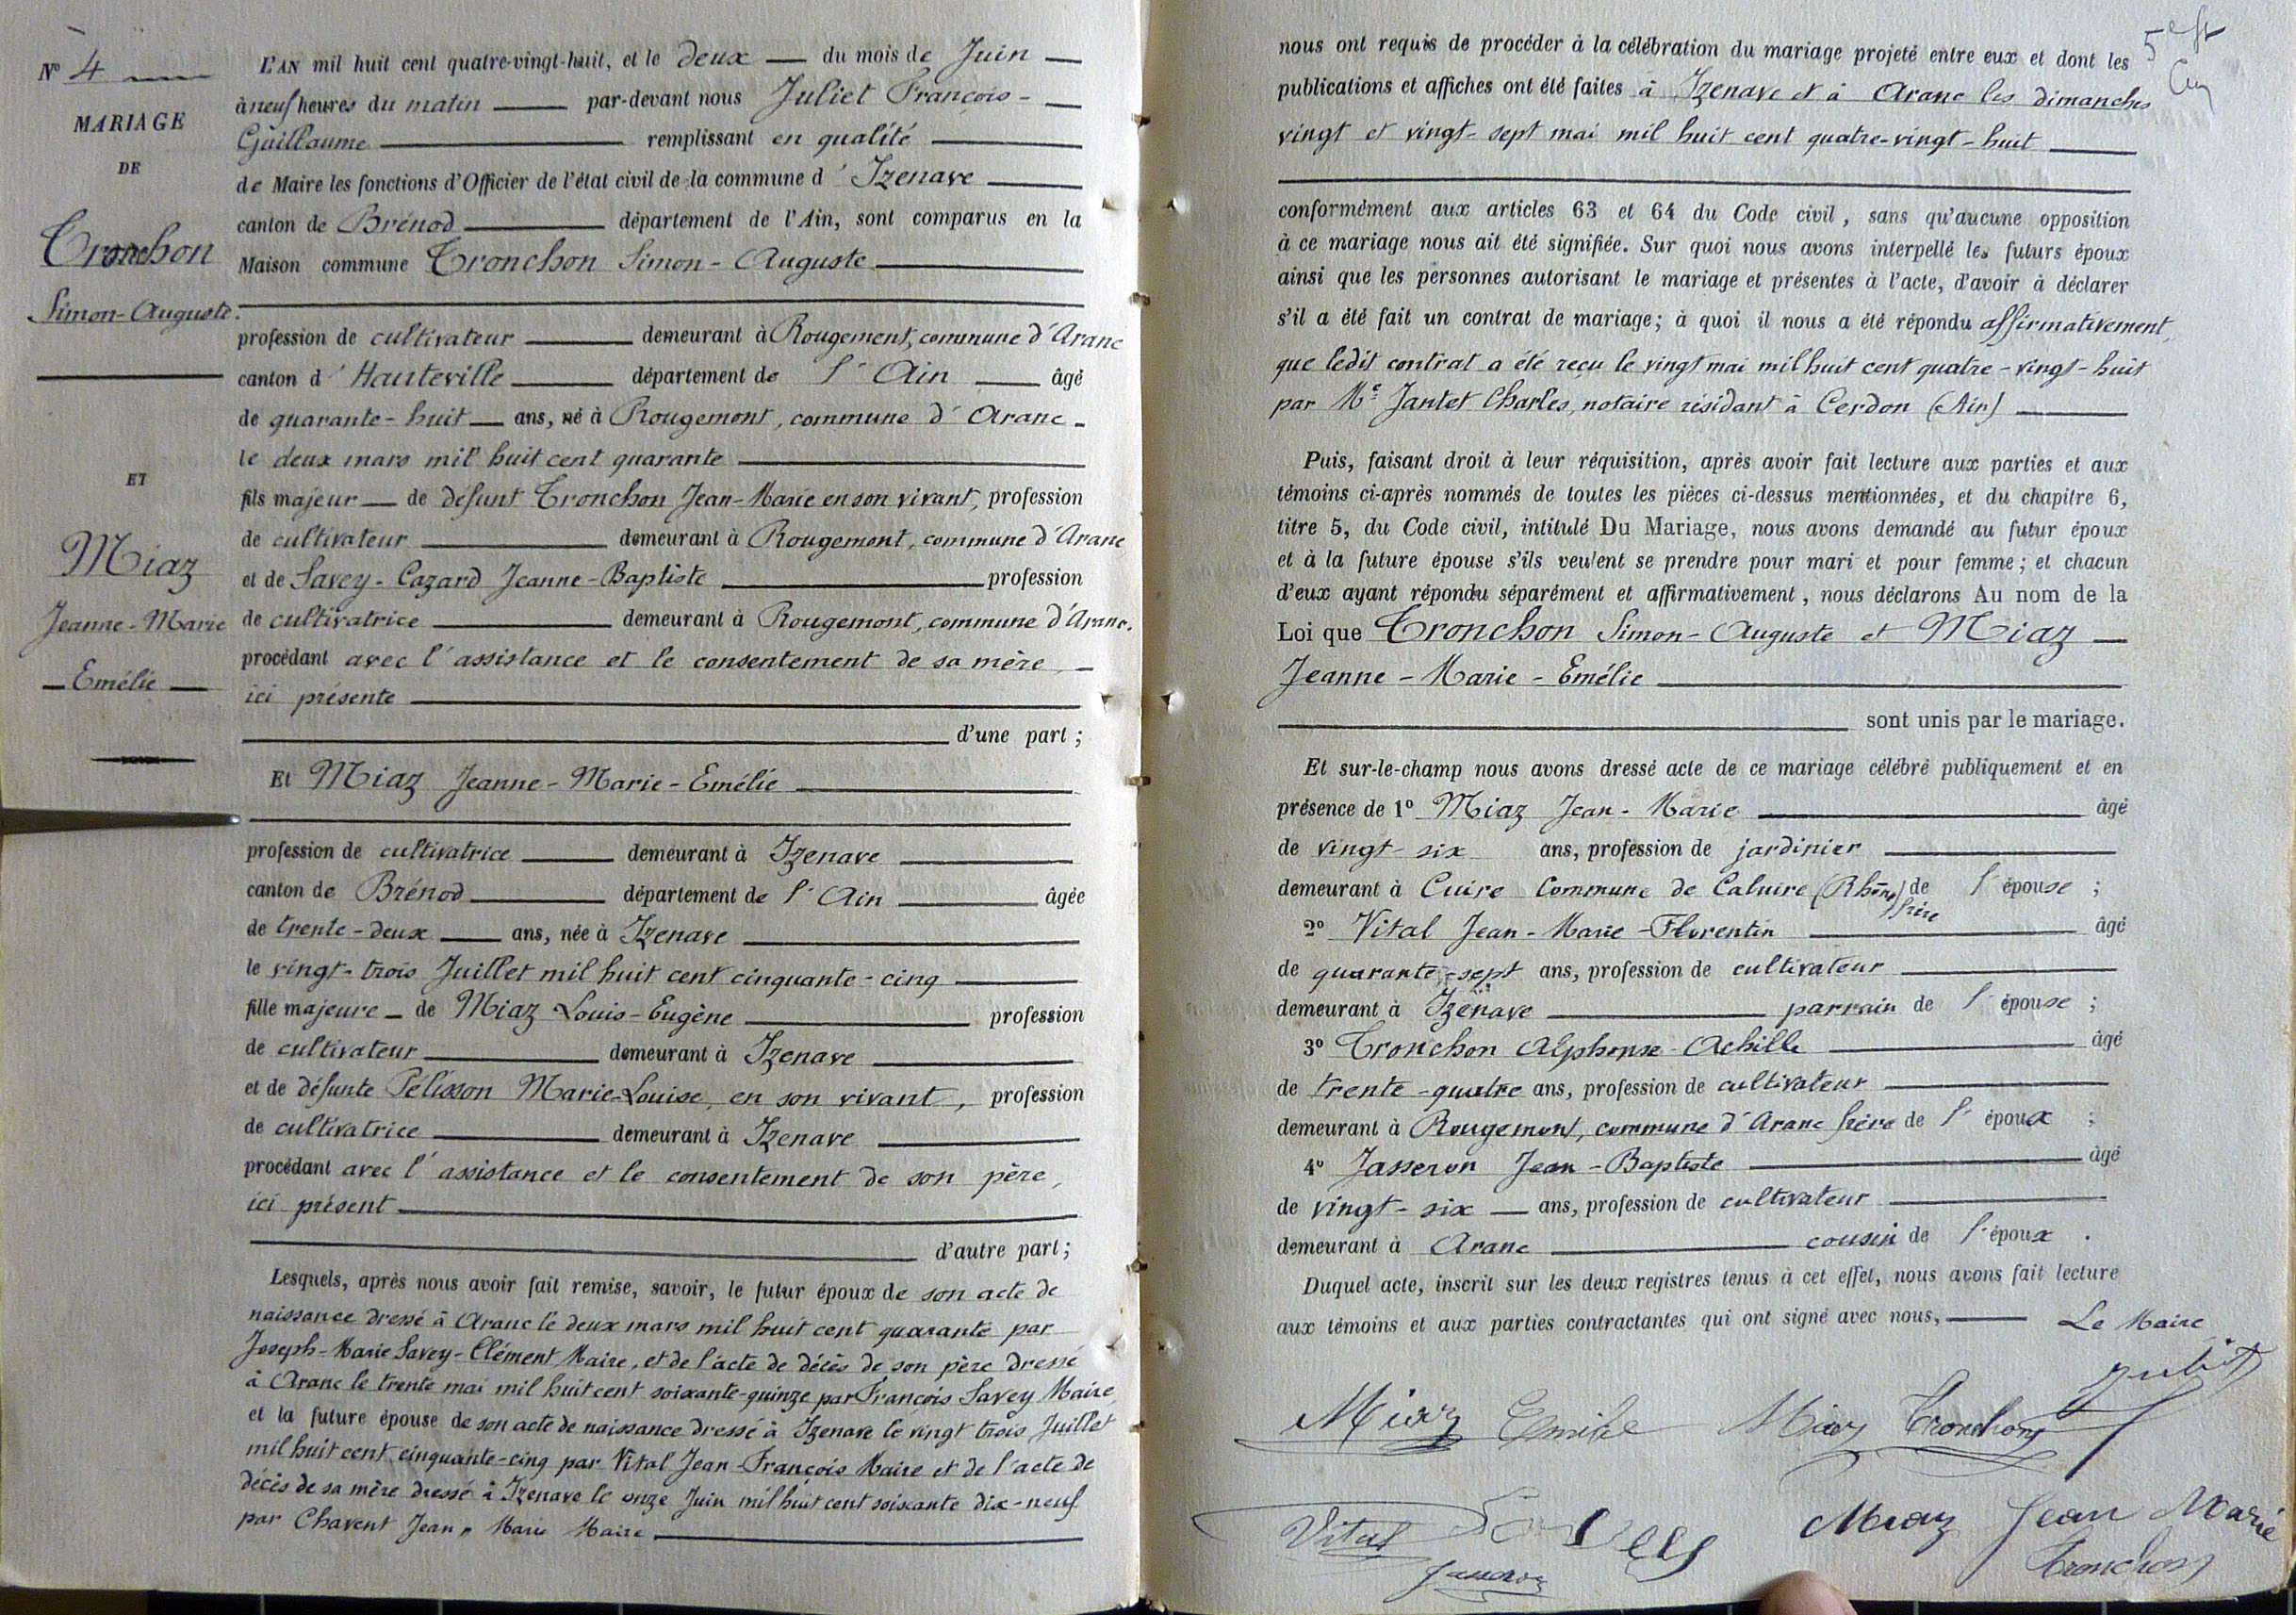 N° 4
MARIAGE
DE
Tronchon
Simon-Auguste.
ET
Miaz
Jeanne-Marie
Emélie
L'AN mil huit cent quatre-vingt-huit, et le deux du mois de Juin
à neuf heures du matin par-devant nous Juliet François-
Guillaume remplissant en qualité
de Maire les fonctions d'Officier de l'état civil de la commune d'Izenave
canton de Brénod département de l'Ain, sont comparus en la
Maison commune Tronchon Simon-Auguste
profession de cultivateur demeurant à Rougement, commune d'Aranc
canton d'Hauteville département de l'Ain âgé
de quarante-huit ans, né à Rougemont, commune d'Aranc
le deux mars mil huit cent quarante
fils majeur de défunt Tronchon Jean-Marie en son vivant, profession
de cultivateur demeurant à Rougemont, commune d'Aranc
et de Savey-Cazard Jeanne-Baptiste profession
de cultivatrice demeurant à Rougemont, commune d'Aranc.
procédant avec l'assistance et le consentement de sa mère,
ici présente
d'une part ;
Et Miaz Jeanne-Marie-Emélie
profession de cultivatrice demeurant à Izenave
canton de Brénod département de l'Ain âgée
de trente-deux ans, née à Izenave
le vingt-trois Juillet mil huit cent cinquante-cinq
fille majeure de Miaz Louis-Eugène profession
de cultivateur demeurant à Izenave
et de défunte Pélisson Marie-Louise, en son vivant, profession
de cultivatrice demeurant à Izenave
procédant avec l'assistance et le consentement de son père,
ici présent
d'autre part ;
Lesquels, après nous avoir fait remise, savoir, le futur époux de son acte de
naissance dressé à Aranc le deux mars mil huit cent quarante par
Joseph-Marie Savey-Clément Maire, et de l'acte de décès de son père dressé
à Aranc le trente mai mil huit cent soixante-quinze par François Savey Maire,
et la future épouse de son acte de naissance dressé à Izenave le vingt trois Juillet
mil huit cent cinquante-cinq par Vital Jean-François Maire et de l'acte de
décès de sa mère dressé à Izenave le onze Juin mil huit cent soixante dix-neuf
par Chavent Jean-Marie Maire
nous ont requis de procéder à la célébration du mariage projeté entre eux et dont les
publications et affiches ont été faites à Izenave et à Aranc les dimanches
vingt et vingt-sept mai mil huit cent quatre-vingt-huit
conformément aux articles 63 et 64 du Code civil, sans qu'aucune opposition
à ce mariage nous ait été signifiée. Sur quoi nous avons interpellé les futurs époux
ainsi que les personnes autorisant le mariage et présentes à l'acte, d'avoir à déclarer
s'il a été fait un contrat de mariage; à quoi il nous a été répondu affirmativement,
que ledit contrat a été reçu le vingt mai mil huit cent quatre-vingt-huit
par Me Jantet Charles, notaire résidant à Cerdon (Ain)
Puis, faisant droit à leur réquisition, après avoir fait lecture aux parties et aux
témoins ci-après nommés de toutes les pièces ci-dessus mentionnées, et du chapitre 6,
titre 5, du Code civil, intitulé Du Mariage, nous avons demandé au futur époux
et à la future épouse s'ils veulent se prendre pour mari et pour femme; et chacun
d'eux ayant répondu séparément et affirmativement, nous déclarons Au nom de la
Loi que Tronchon Simon-Auguste et Miaz
Jeanne-Marie-Emélie
sont unis par le mariage.
Et sur-le-champ nous avons dressé acte de ce mariage célébré publiquement et en
présence de 1° Miaz Jean-Marie âgé
de vingt-six ans, profession de jardinier
demeurant à Cuire Commune de Caluire (Rhône) frère de l'épouse ;
2° Vital Jean-Marie-Florentin âgé
de quarante-sept ans, profession de cultivateur
demeurant à Izenave parrain de l'épouse ;
3° Tronchon Alphonse-Achille âgé
de trente-quatre ans, profession de cultivateur
demeurant à Rougemont, commune d'Aranc frère de l'époux ;
4° Jasseron Jean-Baptiste âgé
de vingt-six ans, profession de cultivateur
demeurant à Aranc cousin de l'époux.
Duquel acte, inscrit sur les deux registres tenus à cet effet, nous avons fait lecture
aux témoins et aux parties contractantes qui ont signé avec nous, Le Maire
Juliet
Miaz Emilie Miaz Tronchon
Vital Miaz Jean Marie
Jasseron Tronchon